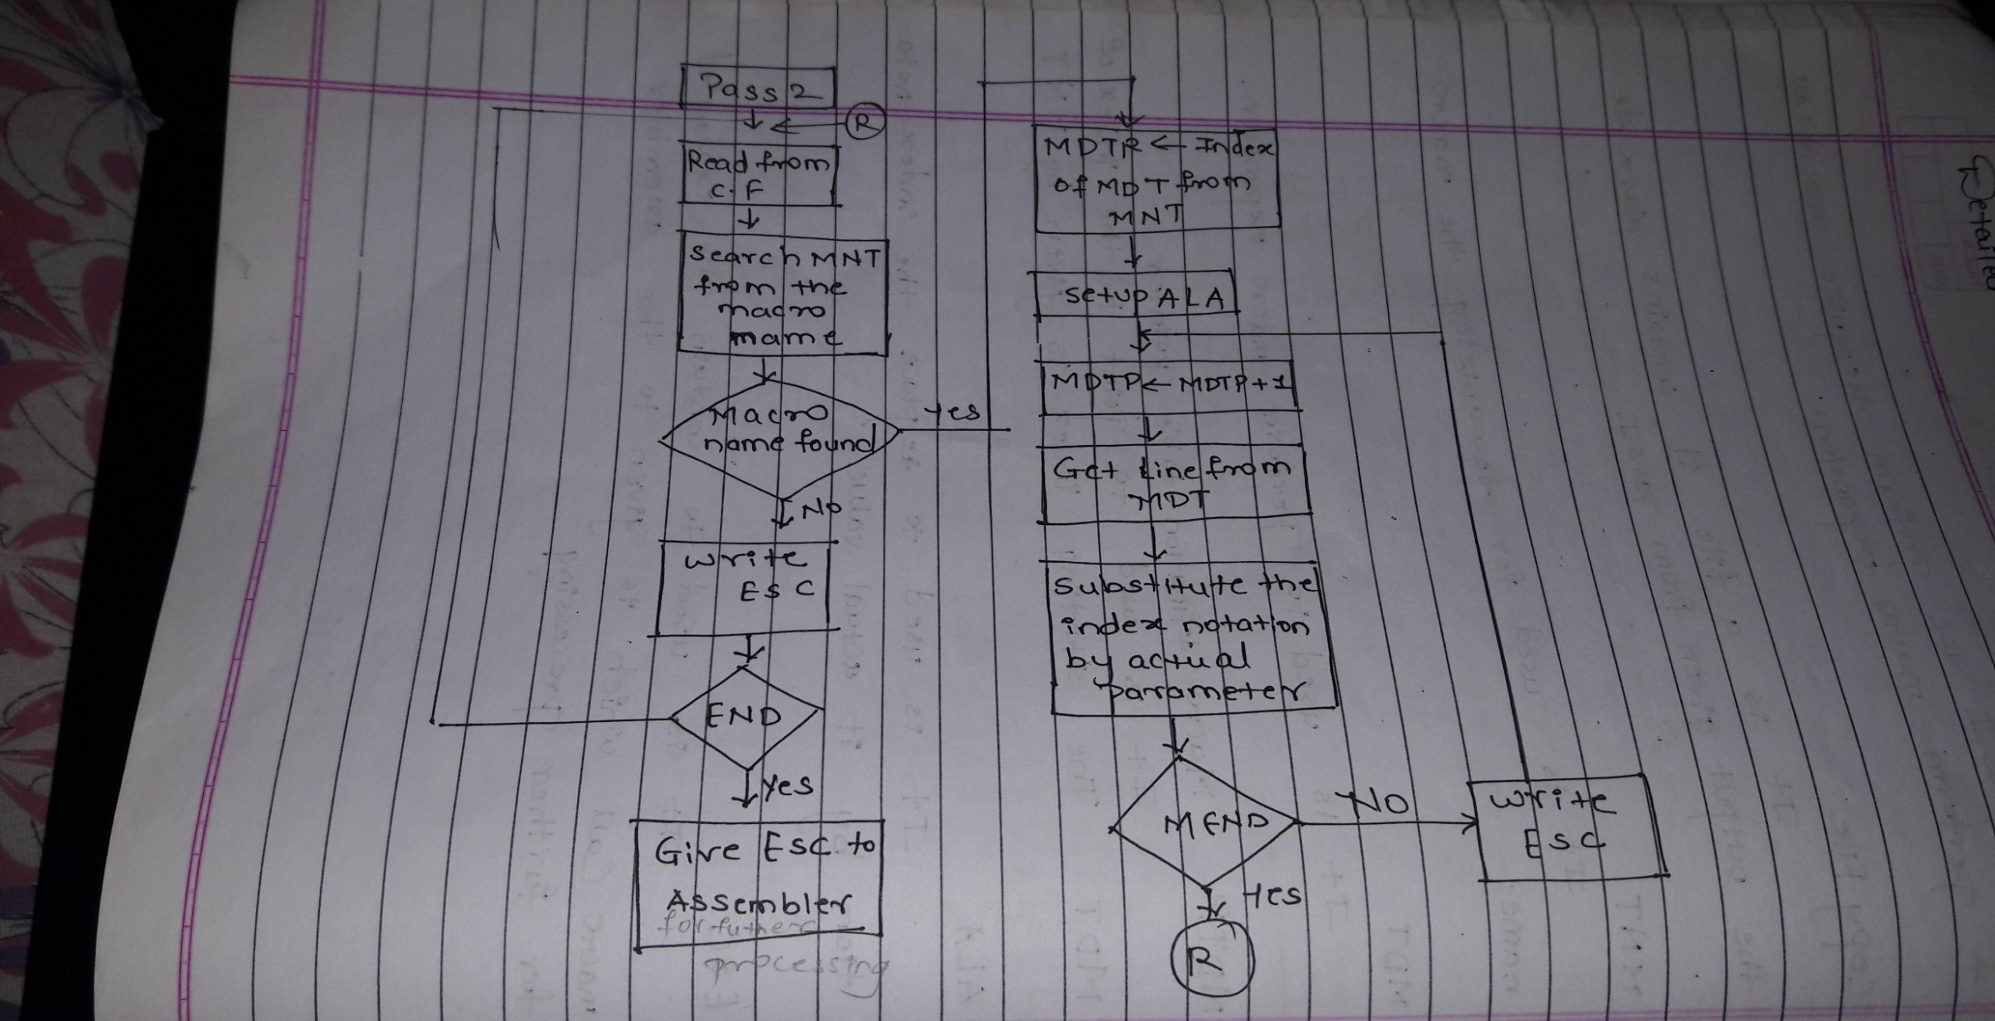 Pass 2
R
Read from
C.F
Search MNT
from the
macro
name
Macro
name found
Yes
No
Write
ESC
END
Yes
Give ESC to
Assembler
for futher
processing
MDTP ← Index
of MDT from
MNT
setup ALA
MDTP ← MDTP + 1
Get Line from
MDT
Substitute the
index notation
by actual
parameter
MEND
No
Write
ESC
Yes
R
Detailed